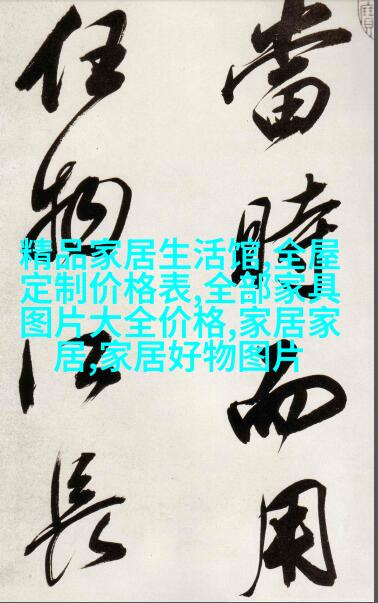 當時而用
任物長
精品家居生活馆,全屋
定制价格表,全部家具
图片大全价格,家居家
居,家居好物图片